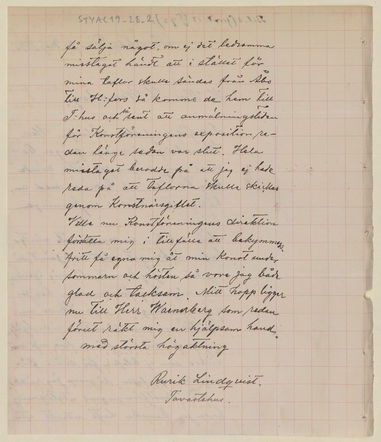 få sälja något, om ej det ledsamma
misstaget händt att i stället för
mina taflor skulle sändas från Åbo
till H:fors så komme de hem till
T:hus och så sent att anmälningstiden
för Konstföreningens exposition re-
dan länge sedan var slut. Hela
misstaget berodde på att jag ej hade
reda på att taflorna skulle skickas
genom Konstnärsgillet.
Ville nu Konstföreningens direktion
försätta mig i tillfälle att bekymmers-
fritt få egna mig åt min konst under
sommarn och hösten så vore jag både
glad och tacksam. Mitt hopp ligger
nu till Herr Waenerberg som redan
förut räkt mig en hjälpsam hand.
med största högaktning
Rurik Lindqvist.
Tavastehus.